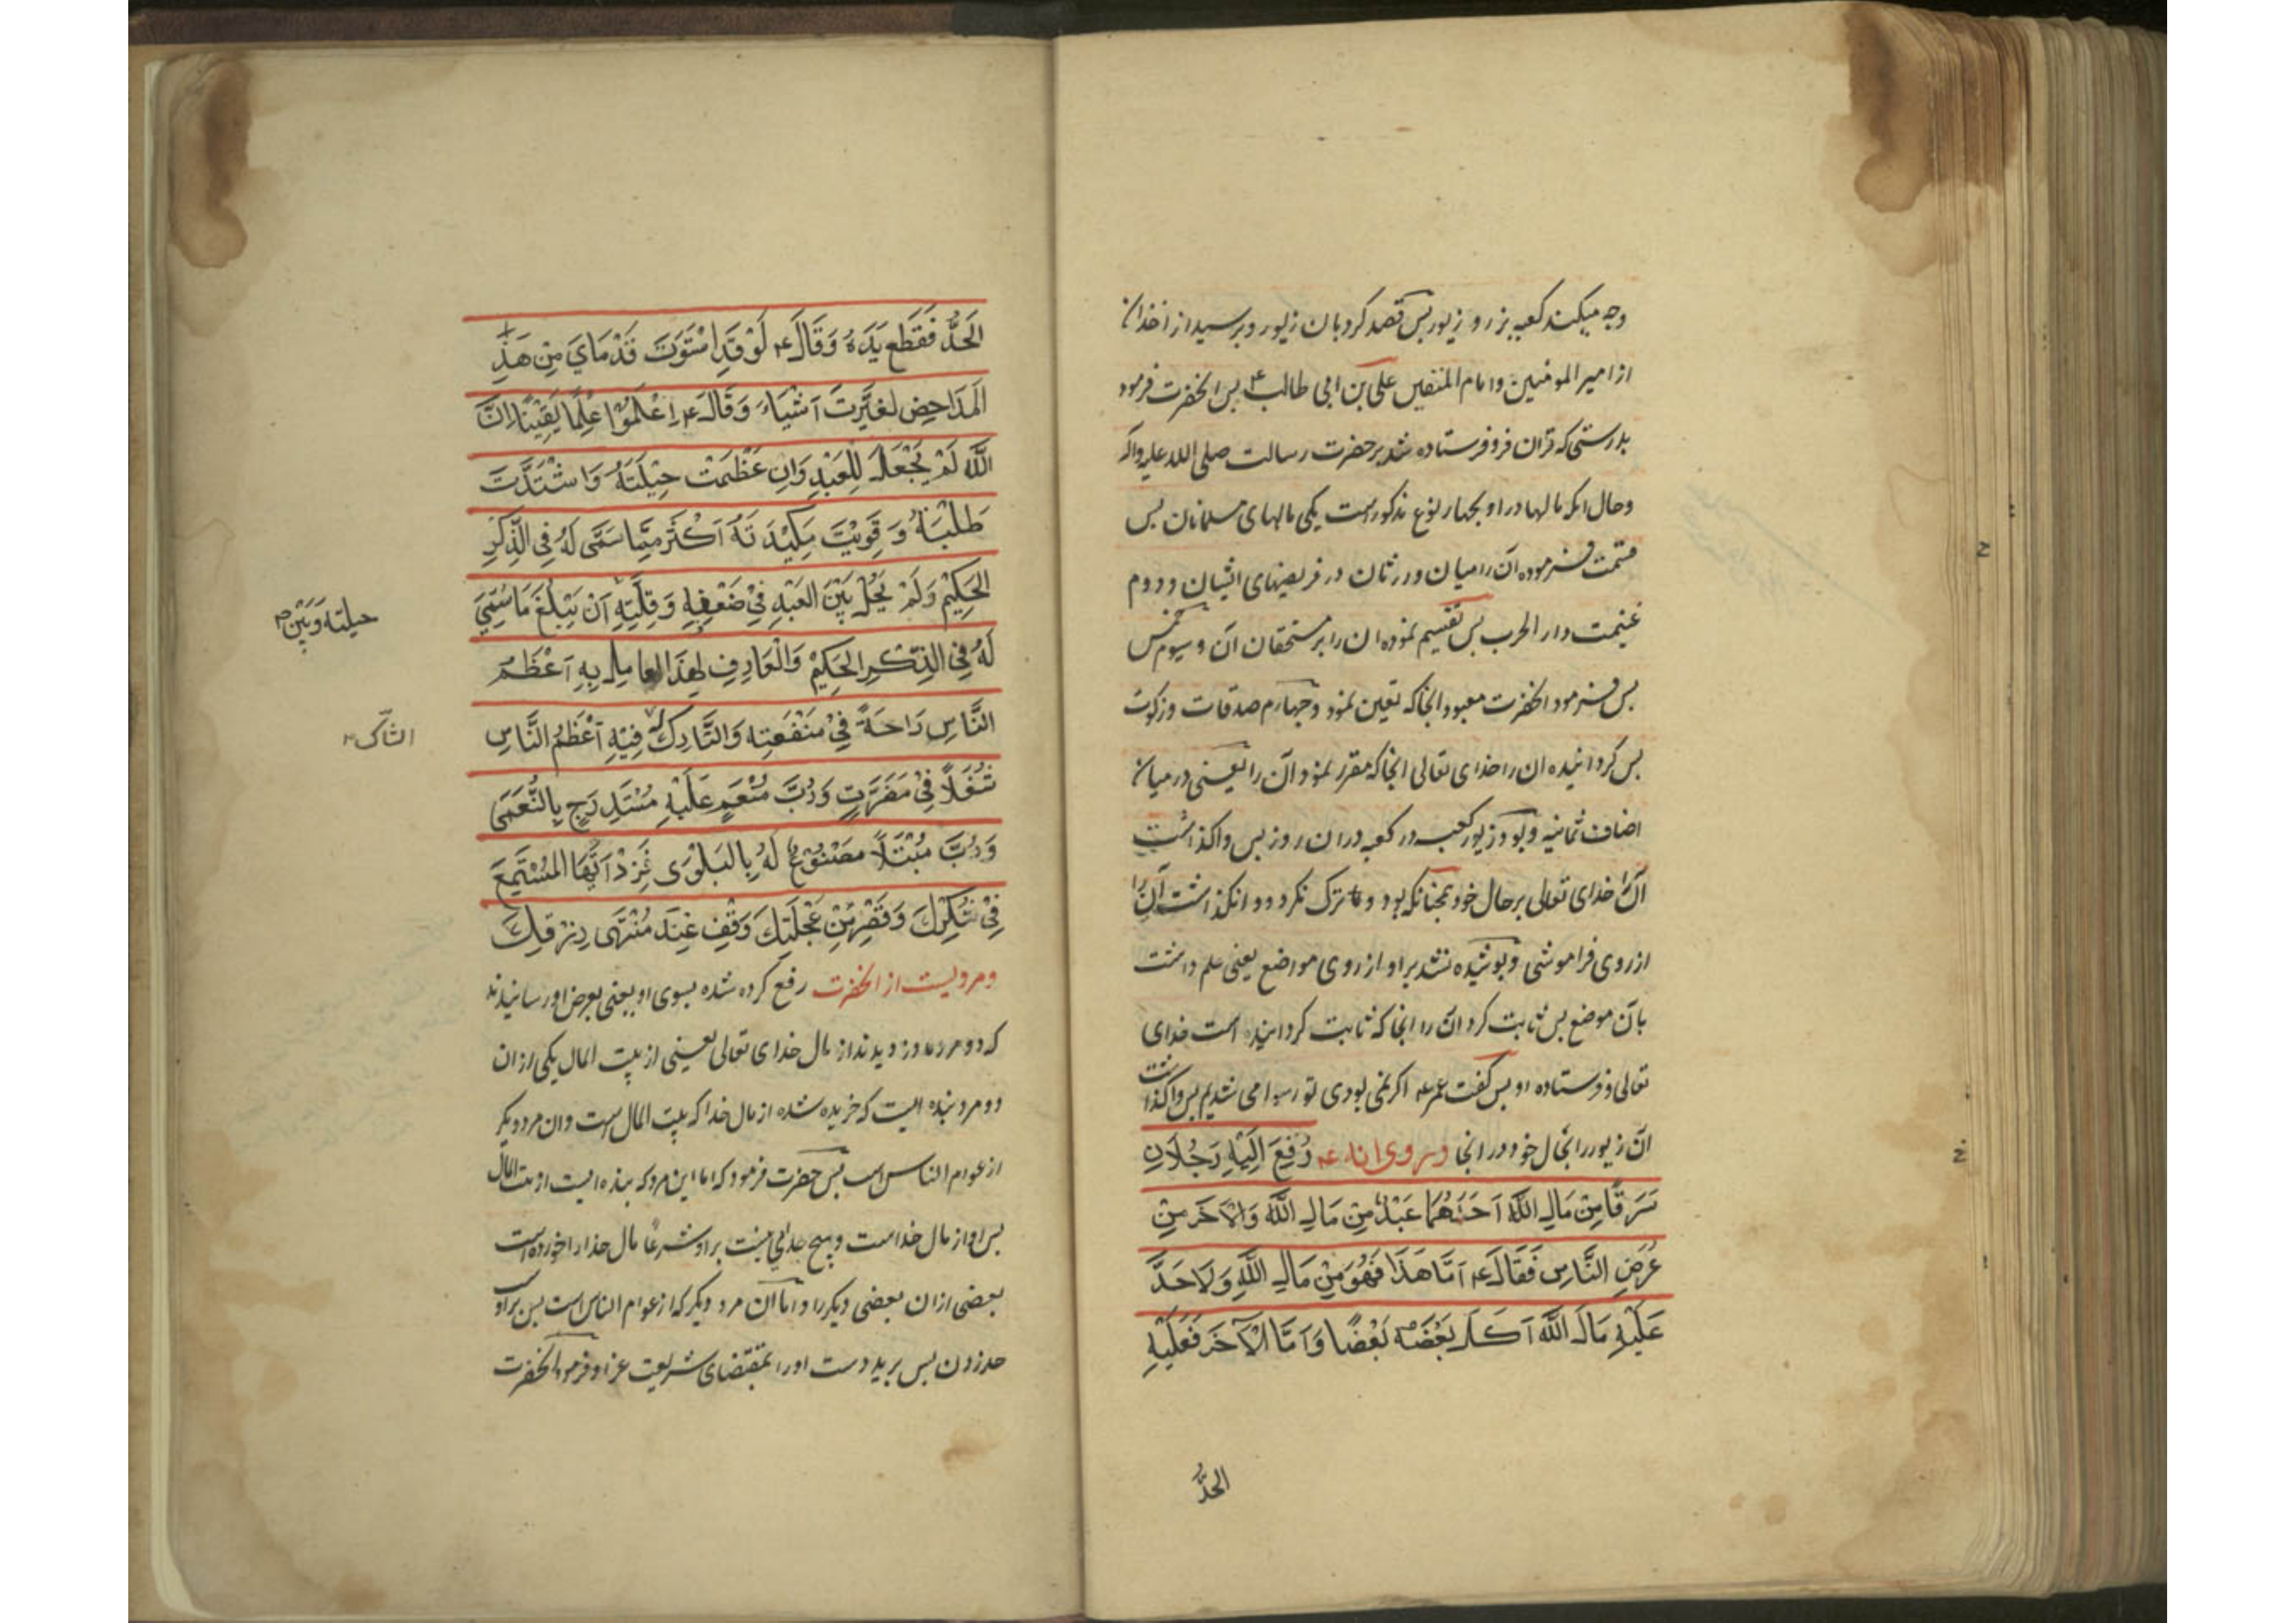 وجه میکند کعبه بزر و زیور پس قصد کرد بان زیور و پرسید از اخذ ان
از امیر المومنین و امام المتقین علی بن ابی طالب ع پس انحضرت فرمود
بدرستی که قران فرو فرستاده شد بر حضرت رسالت صلی الله علیه واله
وحال انکه مالها در او بچهار نوع مذکور است یکی مالهای مسلمانان پس
قسمت فرموده آن را میان ورثتان در فریضهای ایشان و دوم
غنیمت دار الحرب پس تقسیم نموده ان را بر مستحقان آن و سیوم خمس
پس فرمود انحضرت معبود انجا که تعین نمود و چهارم صدقات و زکوت
پس کردانیده ان را خدای تعالی انجا که مقرر نمود آن را یعنی در میان
اصناف ثمانیه و بود زیور کعبه در کعبه در ان روز پس واکذاشت
آن را خدای تعالی بر حال خود همچنانکه بود و ترک نکرد و وانکذاشت آن را
از روی فراموشی و پوشیده نشد بر او از روی مواضع یعنی علم داشت
بآن موضع پس ثابت کرد آن را انجا که ثابت کردانیده است خدای
تعالی و فرستاده او پس کفت عمر که اکر نمی بودی تو رسوا می شدیم پس واکذاشت
آن زیور را بحال خود در انجا وروی انه ع رُفِعَ اِلَیْهِ رَجُلَانِ
سَرَقَا مِنْ مَالِ اللّٰهِ اَحَدُهُمَا عَبْدٌ مِنْ مَالِ اللّٰهِ وَالْآخَرُ مِنْ
عُرْضِ النَّاسِ فَقَالَ ع اَمَّا هَذَا فَهُوَ مِنْ مَالِ اللّٰهِ وَلَا حَدَّ
عَلَیْهِ مَالُ اللّٰهِ اَکَلَ بَعْضُهُ بَعْضًا وَاَمَّا الْآخَرُ فَعَلَیْهِ
الحَدُّ
الحَدُّ فَقَطَعَ یَدَهُ وَقَالَ ع لَوْ قَدِ اسْتَوَتْ قَدَمَایَ مِنْ هَذِهِ
المَدَاحِضِ لَغَیَّرْتُ اَشْیَاءَ وَقَالَ ع اِعْلَمُوْا عِلْمًا یَقِیْنًا اِنَّ
اللّٰهَ لَمْ یَجْعَلْ لِلْعَبْدِ وَاِنْ عَظُمَتْ حِیْلَتُهُ وَاشْتَدَّتْ
طَلِبَتُهُ وَقَوِیَتْ مَکِیْدَتُهُ اَکْثَرَ مِمَّا سَمَّی لَهُ فِی الذِّکْرِ
الحَکِیْمِ وَلَمْ یَحُلْ بَیْنَ العَبْدِ فِیْ ضَعْفِهِ وَقِلَّةِ اَنْ یَبْلُغَ مَا سُمِّیَ
حیلته وَبَیْنَ
لَهُ فِی الذِّکْرِ الحَکِیْمِ وَالْعَارِفُ لِهَذَا العَامِلُ بِهِ اَعْظَمُ
النَّاسِ رَاحَةً فِیْ مَنْفَعَتِهِ وَالتَّارِکُ فِیْهِ اَعْظَمُ النَّاسِ
الشّاک
شُغُلًا فِیْ مَضَرَّتٍ وَرُبَّ مُنْعَمٍ عَلَیْهِ مُسْتَدْرَجٍ بِالنُّعْمَی
وَرُبَّ مُبْتَلًا مَصْنُوْعٌ لَهُ بِالبَلْوَی فَزِدْ اَیُّهَا المُسْتَمِعُ
فِیْ شُکْرِکَ وَقَصِّرْ مِنْ عَجَلَتِکَ وَقِفْ عِنْدَ مُنْتَهَی رِزْقِکَ
ومرویست از انحضرت رفع کرده شده بسوی او یعنی بعرض او رسانیدند
که دو مرد دزدیدند از مال خدای تعالی یعنی از بیت المال یکی از ان
دو مرد بنده ایست که خریده شده از مال خدا که بیت المال است وان مرد دیکر
از عوام الناس است پس حضرت فرمود که اما این مرد که بنده ایست از بیت المال
پس او از مال خداست و هیچ حدی نیست بر او شرعا مال خدا را خورده است
بعضی از ان بعضی دیکر را و اما آن مرد دیکر که از عوام الناس است پس بر او
حد زدن پس برید دست او را بمقتضای شریعت غرا و فرمود انحضرت